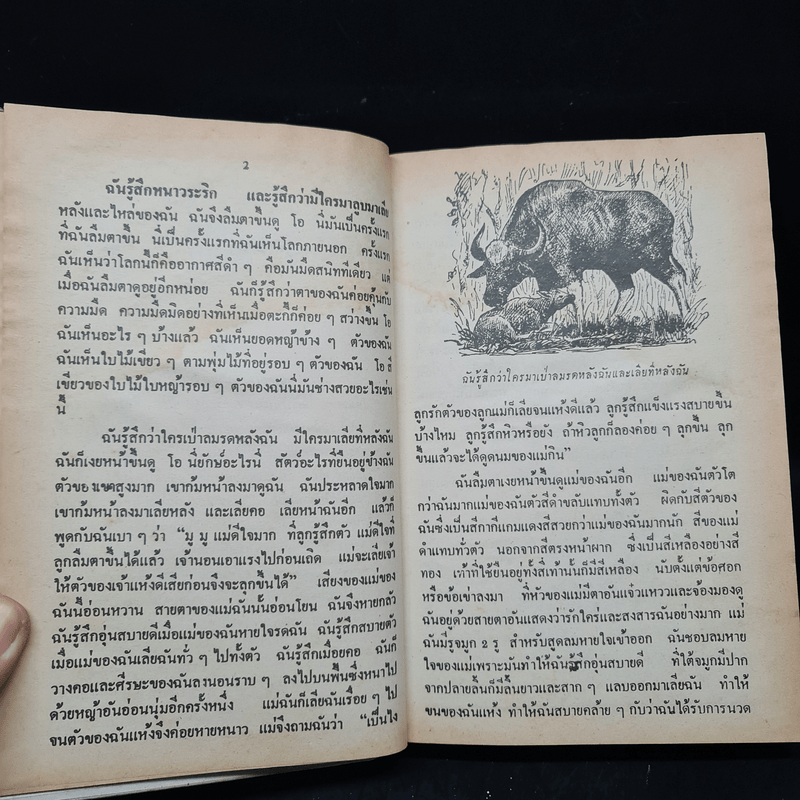 2
ฉันรู้สึกหนาวระริก และรู้สึกว่ามีใครมาลูบมาเลีย
หลังและไหล่ของฉัน ฉันจึงลืมตาขึ้นดู โอ นี่มันเป็นครั้งแรก
ที่ฉันลืมตาขึ้น นี่เป็นครั้งแรกที่ฉันเห็นโลกภายนอก ครั้งแรก
ฉันเห็นว่าโลกนี้ก็คืออากาศสีดำ ๆ คือมันมืดสนิททีเดียว แต่
เมื่อฉันลืมตาดูอยู่อีกหน่อย ฉันก็รู้สึกว่าตาของฉันค่อยคุ้นกับ
ความมืด ความมืดมิดอย่างที่เห็นเมื่อตะกี้ก็ค่อย ๆ สว่างขึ้น โอ
ฉันเห็นอะไร ๆ บ้างแล้ว ฉันเห็นยอดหญ้าข้าง ๆ ตัวของฉัน
ฉันเห็นใบไม้เขียว ๆ ตามพุ่มไม้ที่อยู่รอบ ๆ ตัวของฉัน โอ สี
เขียวของใบไม้ใบหญ้ารอบ ๆ ตัวของฉันนี่มันช่างสวยอะไรเช่น
นี้
ฉันรู้สึกว่าใครเป่าลมรดหลังฉัน มีใครมาเลียที่หลังฉัน
ฉันก็เงยหน้าขึ้นดู โอ นี่ยักษ์อะไรนี่ สัตว์อะไรที่ยืนอยู่ข้างฉัน
ตัวของเขาสูงมาก เขาก้มหน้าลงมาดูฉัน ฉันประหลาดใจมาก
เขาก้มหน้าลงมาเลียหลัง และเลียคอ เลียหน้าฉันอีก แล้วก็
พูดกับฉันเบา ๆ ว่า “มู มู แม่ดีใจมาก ที่ลูกรู้สึกตัว แม่ดีใจที่
ลูกลืมตาขึ้นได้แล้ว เจ้านอนเอาแรงไปก่อนเถิด แม่จะเลียเจ้า
ให้ตัวของเจ้าแห้งดีเสียก่อนจึงจะลุกขึ้นได้” เสียงของแม่ของ
ฉันนี้อ่อนหวาน สายตาของแม่ฉันนั้นอ่อนโยน ฉันจึงหายกลัว
ฉันรู้สึกอุ่นสบายดีเมื่อแม่ของฉันหายใจรดฉัน ฉันรู้สึกสบายตัว
เมื่อแม่ของฉันเลียฉันทั่ว ๆ ไปทั้งตัว ฉันรู้สึกเมื่อยคอ ฉันก็
วางคอและศีรษะของฉันลงนอนราบ ๆ ลงไปบนพื้นซึ่งหนาไป
ด้วยหญ้าอันอ่อนนุ่มอีกครั้งหนึ่ง แม่ฉันก็เลียฉันเรื่อย ๆ ไป
จนตัวของฉันแห้งจึงค่อยหายหนาว แม่จึงถามฉันว่า “เป็นไง
ฉันรู้สึกว่าใครมาเป่าลมรดหลังฉันและเลียที่หลังฉัน
ลูกรักตัวของลูกแม่ก็เลียจนแห้งดีแล้ว ลูกรู้สึกแข็งแรงสบายขึ้น
บ้างไหม ลูกรู้สึกหิวหรือยัง ถ้าหิวลูกก็ลองค่อย ๆ ลุกขึ้น ลุก
ขึ้นแล้วจะได้ดูดนมของแม่กิน”
ฉันลืมตาเงยหน้าขึ้นดูแม่ของฉันอีก แม่ของฉันตัวโต
กว่าฉันมากแม่ของฉันตัวสีดำขลับแทบทั้งตัว ผิดกับสีตัวของ
ฉันซึ่งเป็นสีกากีแกมแดงสีสวยกว่าแม่ของฉันมากนัก สีของแม่
ดำแทบทั่วตัว นอกจากสีตรงหน้าผาก ซึ่งเป็นสีเหลืองอย่างสี
ทอง เท้าที่ใช้ยืนอยู่ทั้งสี่เท้านั้นก็มีสีเหลือง นับตั้งแต่ข้อศอก
หรือข้อเข่าลงมา ที่หัวของแม่มีตาอันแจ๋วแหววและจ้องมองดู
ฉันอยู่ด้วยสายตาอันแสดงว่ารักใคร่และสงสารฉันอย่างมาก แม่
ฉันมีรูจมูก 2 รู สำหรับสูดลมหายใจเข้าออก ฉันชอบลมหาย
ใจของแม่เพราะมันทำให้ฉันรู้สึกอุ่นสบายดี ที่ใต้จมูกมีปาก
จากปลายลิ้นก็มีลิ้นยาวและสาก ๆ แลบออกมาเลียฉัน ทำให้
ขนของฉันแห้ง ทำให้ฉันสบายคล้าย ๆ กับว่าฉันได้รับการนวด